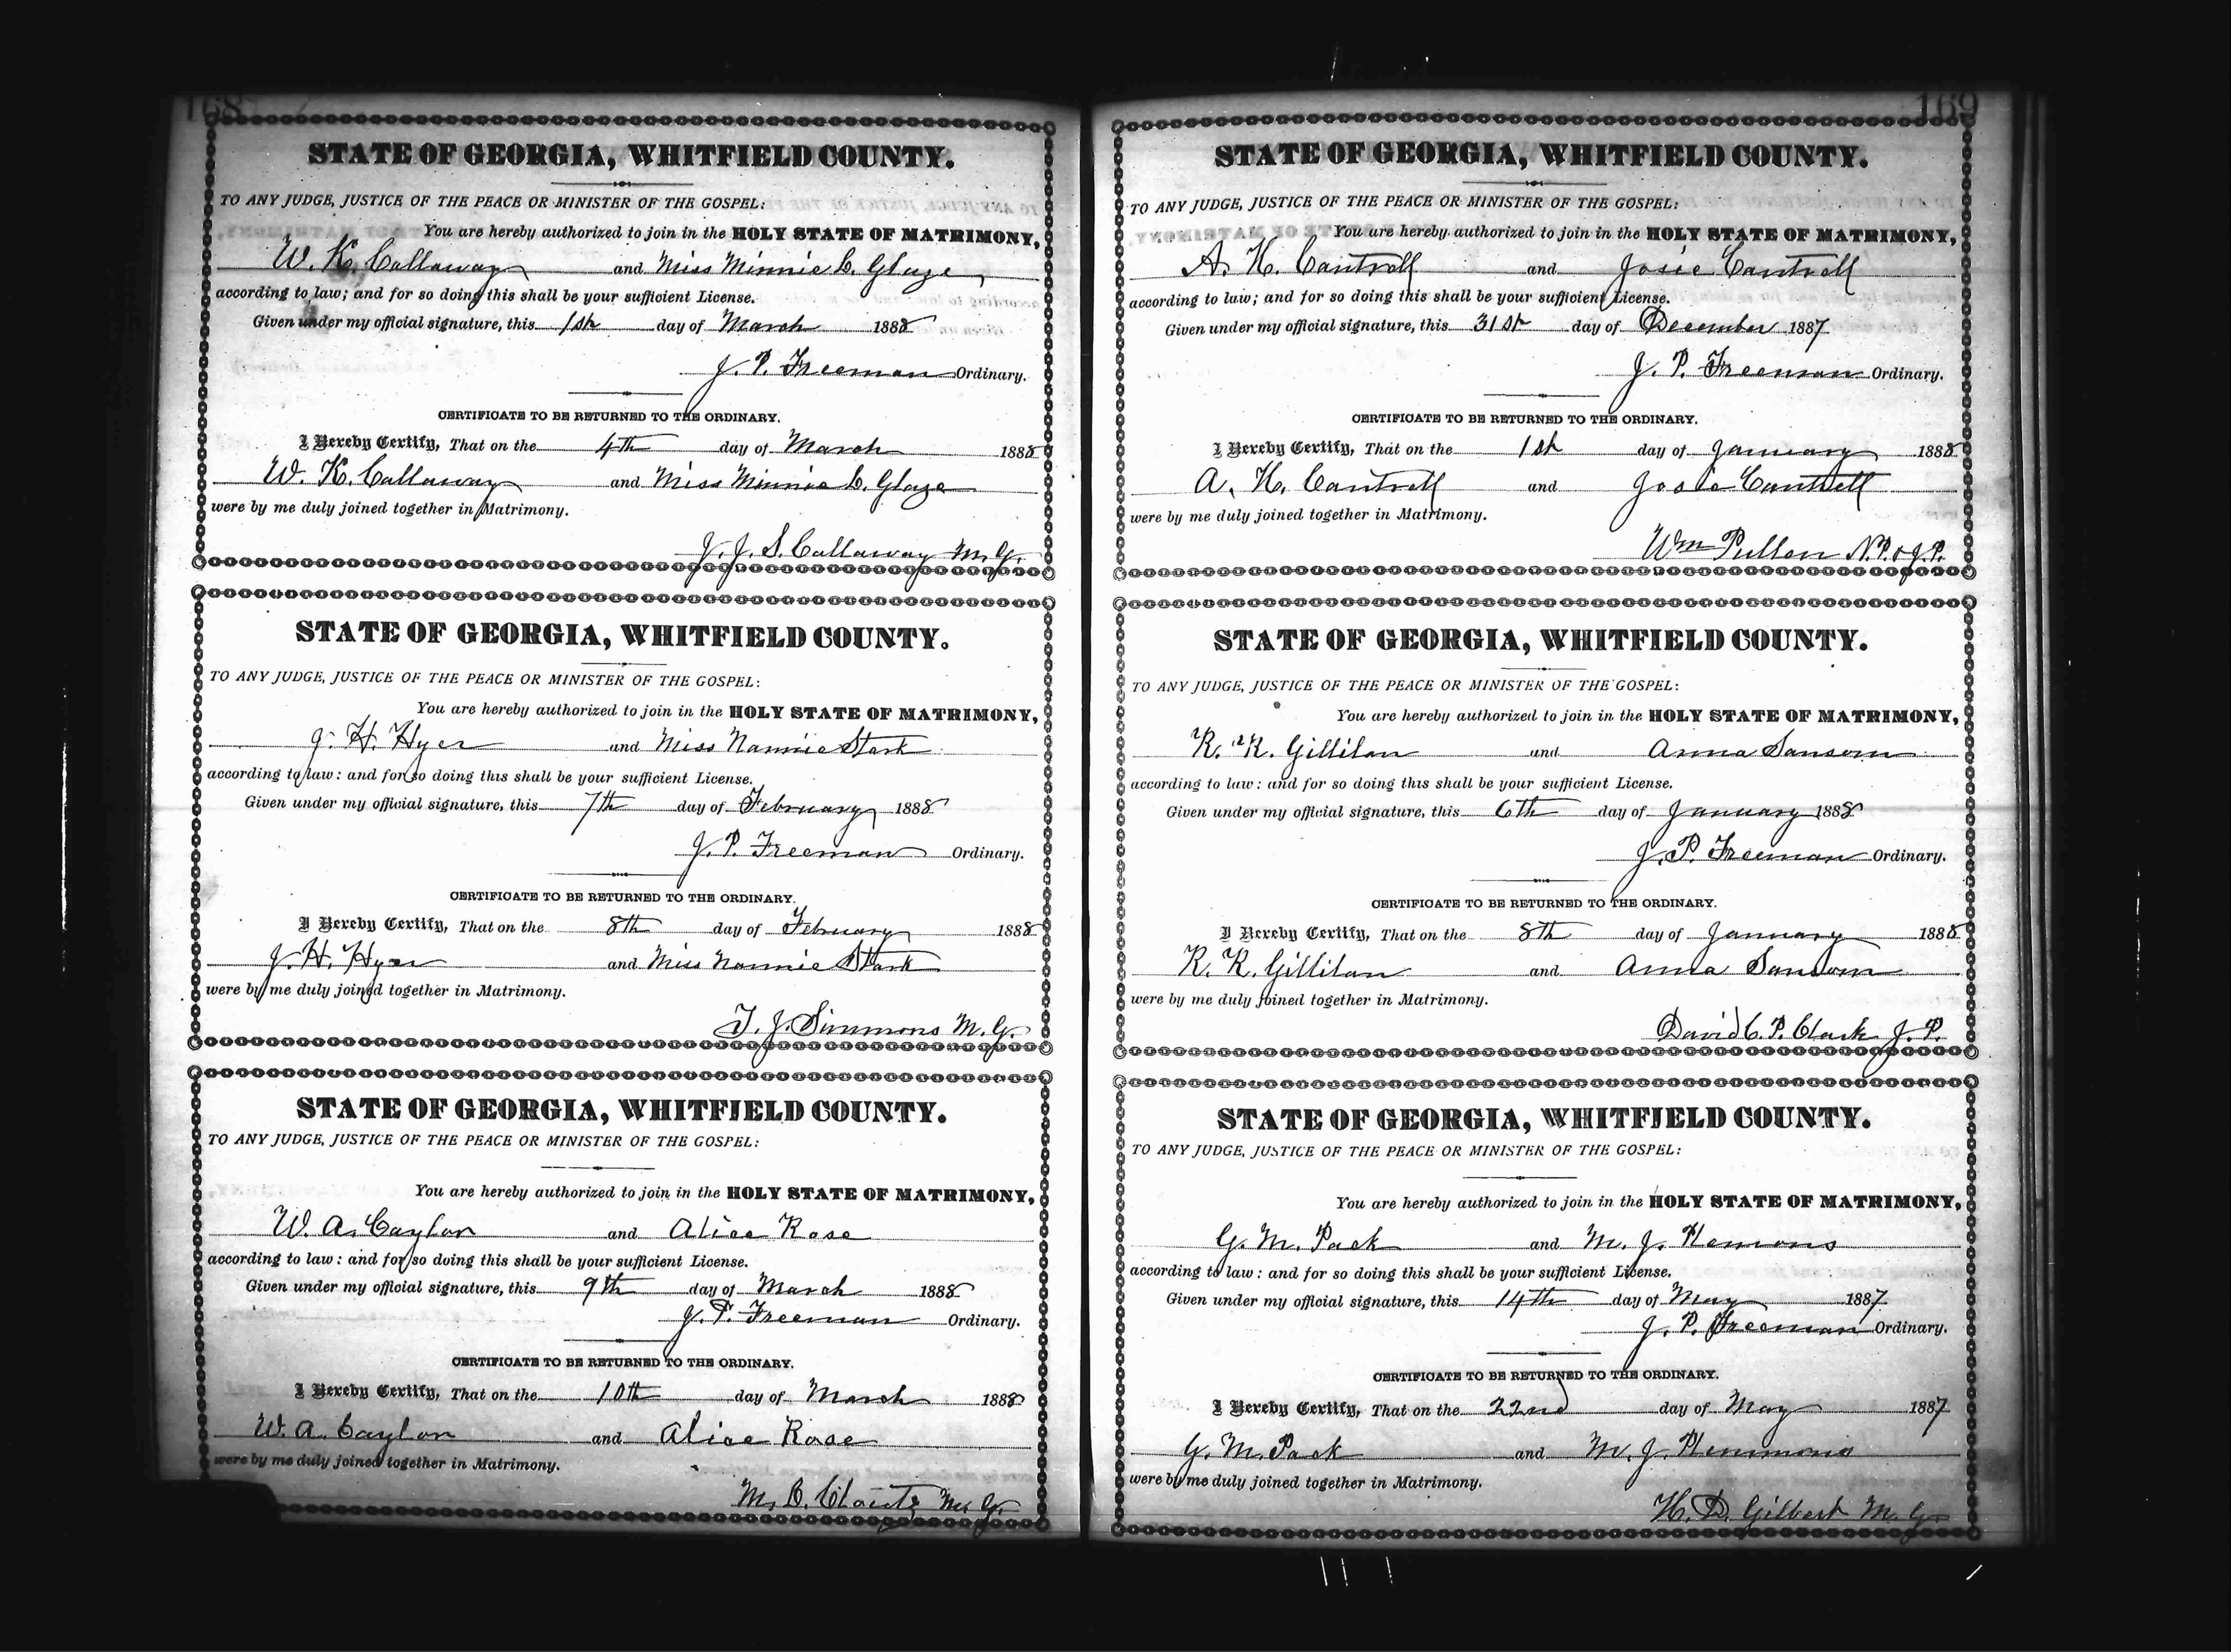 168
STATE OF GEORGIA, WHITFIELD COUNTY.
TO ANY JUDGE, JUSTICE OF THE PEACE OR MINISTER OF THE GOSPEL:
You are hereby authorized to join in the HOLY STATE OF MATRIMONY,
W. K. Callaway and Miss Minnie C. Glaze
according to law; and for so doing this shall be your sufficient License.
Given under my official signature, this 1st day of March 1888
J. P. Freeman Ordinary.
CERTIFICATE TO BE RETURNED TO THE ORDINARY.
I Hereby Certify, That on the 4th day of March 1888
W. K. Callaway and Miss Minnie C. Glaze
were by me duly joined together in Matrimony.
J. J. S. Callaway M. G.
STATE OF GEORGIA, WHITFIELD COUNTY.
TO ANY JUDGE, JUSTICE OF THE PEACE OR MINISTER OF THE GOSPEL:
You are hereby authorized to join in the HOLY STATE OF MATRIMONY,
J. H. Hyer and Miss Nannie Stark
according to law: and for so doing this shall be your sufficient License.
Given under my official signature, this 7th day of February 1888
J. P. Freeman Ordinary.
CERTIFICATE TO BE RETURNED TO THE ORDINARY.
I Hereby Certify, That on the 8th day of February 1888
J. H. Hyer and Miss Nannie Stark
were by me duly joined together in Matrimony.
T. J. Simmons M. G.
STATE OF GEORGIA, WHITFIELD COUNTY.
TO ANY JUDGE, JUSTICE OF THE PEACE OR MINISTER OF THE GOSPEL:
You are hereby authorized to join in the HOLY STATE OF MATRIMONY,
W. A. Caylor and Alice Rose
according to law: and for so doing this shall be your sufficient License.
Given under my official signature, this 9th day of March 1888
J. P. Freeman Ordinary.
CERTIFICATE TO BE RETURNED TO THE ORDINARY.
I Hereby Certify, That on the 10th day of March 1888
W. A. Caylor and Alice Rose
were by me duly joined together in Matrimony.
M. C. M. G.
169
STATE OF GEORGIA, WHITFIELD COUNTY.
TO ANY JUDGE, JUSTICE OF THE PEACE OR MINISTER OF THE GOSPEL:
You are hereby authorized to join in the HOLY STATE OF MATRIMONY,
A. H. Cantrell and Josie Cantrell
according to law; and for so doing this shall be your sufficient License.
Given under my official signature, this 31st day of December 1887
J. P. Freeman Ordinary.
CERTIFICATE TO BE RETURNED TO THE ORDINARY.
I Hereby Certify, That on the 1st day of January 1888
A. H. Cantrell and Josie Cantrell
were by me duly joined together in Matrimony.
Wm Pullen N.P. & J.P.
STATE OF GEORGIA, WHITFIELD COUNTY.
TO ANY JUDGE, JUSTICE OF THE PEACE OR MINISTER OF THE GOSPEL:
You are hereby authorized to join in the HOLY STATE OF MATRIMONY,
R. R. Gillilan and Anna Sansom
according to law: and for so doing this shall be your sufficient License.
Given under my official signature, this 6th day of January 1888
J. P. Freeman Ordinary.
CERTIFICATE TO BE RETURNED TO THE ORDINARY.
I Hereby Certify, That on the 8th day of January 1888
R. R. Gillilan and Anna Sansom
were by me duly joined together in Matrimony.
David C. P. Clark J. P.
STATE OF GEORGIA, WHITFIELD COUNTY.
TO ANY JUDGE, JUSTICE OF THE PEACE OR MINISTER OF THE GOSPEL:
You are hereby authorized to join in the HOLY STATE OF MATRIMONY,
G. M. Pack and M. J. Hemons
according to law: and for so doing this shall be your sufficient License.
Given under my official signature, this 14th day of May 1887
J. P. Freeman Ordinary.
CERTIFICATE TO BE RETURNED TO THE ORDINARY.
I Hereby Certify, That on the 22nd day of May 1887
G. M. Pack and M. J. Hemmons
were by me duly joined together in Matrimony.
H. D. Gilbert M. G.